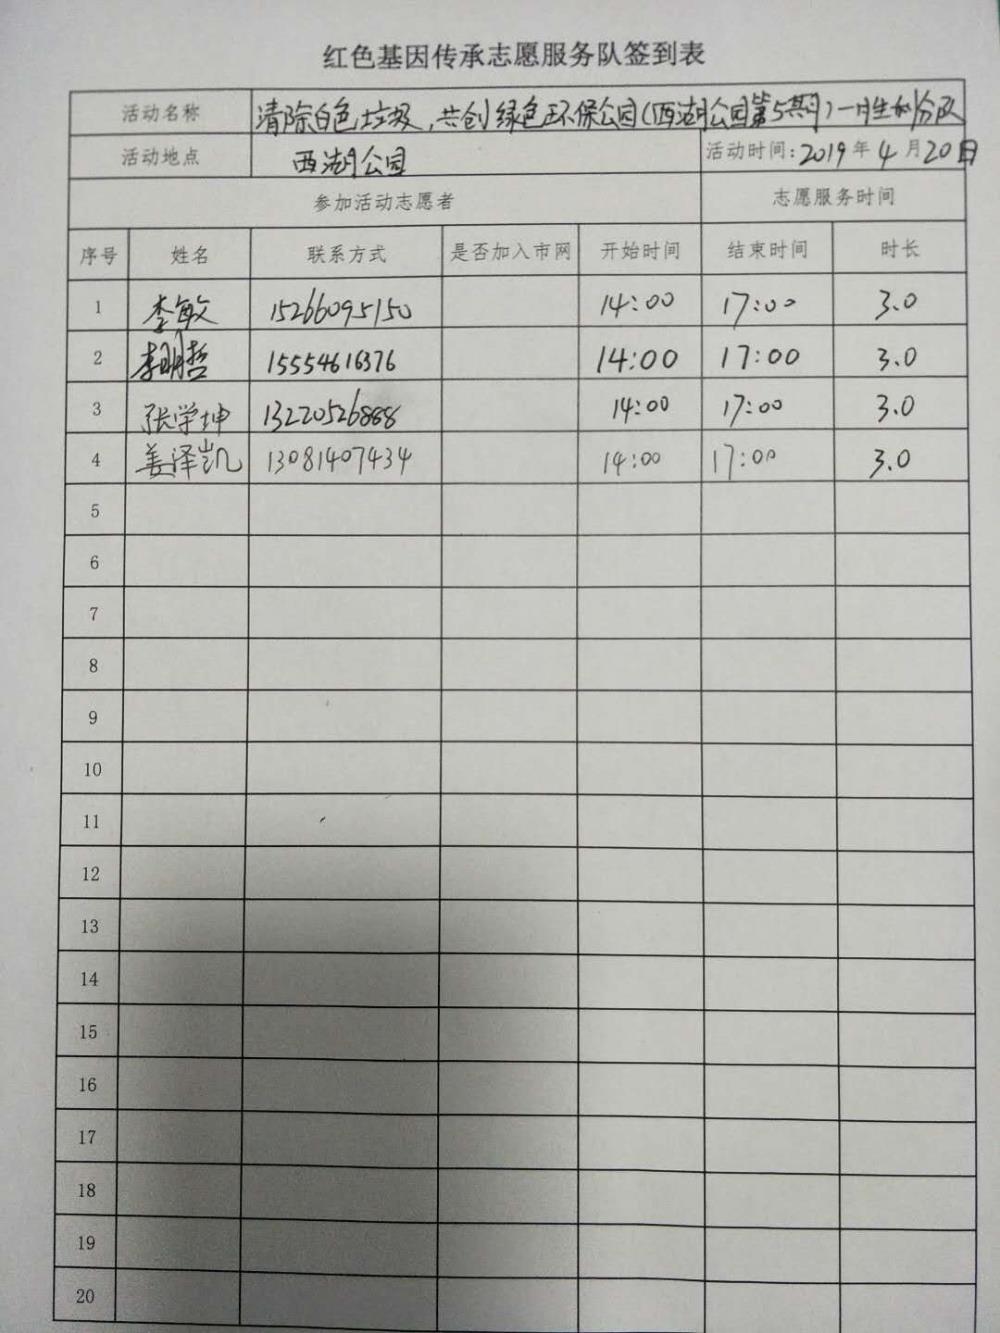 红色基因传承志愿服务队签到表
活动名称 清除白色垃圾,共创绿色环保公园(西湖公园第5期)一 分队
活动地点 西湖公园 活动时间:2019年4月20日
参加活动志愿者 志愿服务时间
序号 姓名 联系方式 是否加入市网 开始时间 结束时间 时长
1 李敏 15266095150 14:00 17:00 3.0
2 李明哲 15554616376 14:00 17:00 3.0
3 张学坤 13220526888 14:00 17:00 3.0
4 姜泽凯 13081407434 14:00 17:00 3.0
5
6
7
8
9
10
11
12
13
14
15
16
17
18
19
20